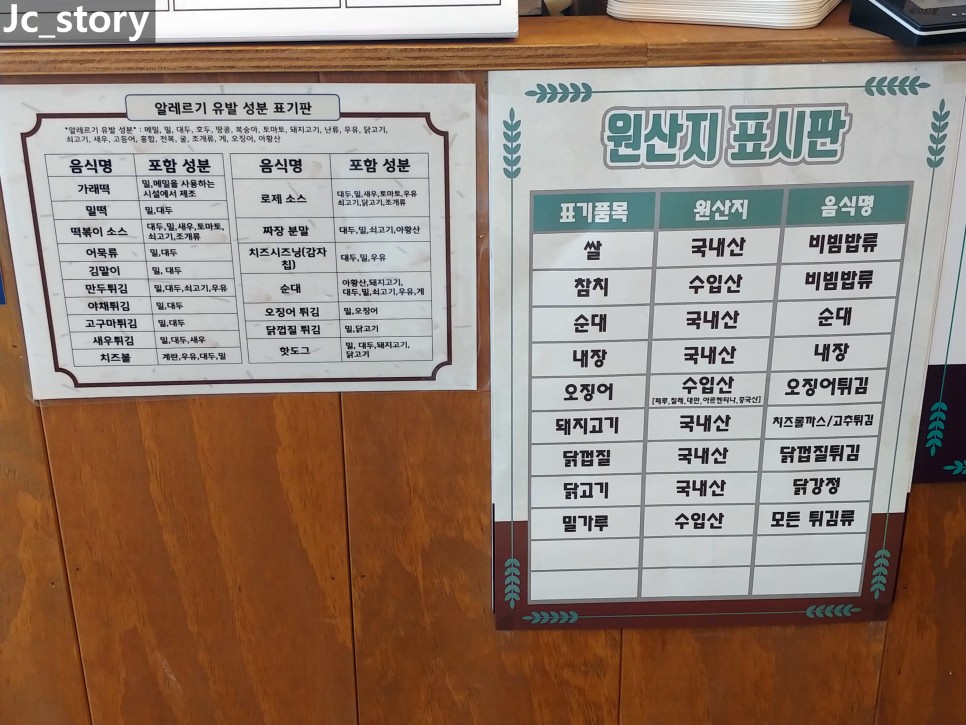 Jc_story
알레르기 유발 성분 표기판
*알레르기 유발 성분* : 메밀, 밀, 대두, 호두, 땅콩, 복숭아, 토마토, 돼지고기, 난류, 우유, 닭고기,
쇠고기, 새우, 고등어, 홍합, 전복, 굴, 조개류, 게, 오징어, 아황산
음식명 포함 성분
가래떡 밀,메밀을 사용하는
시설에서 제조
밀떡 밀,대두
떡볶이 소스 대두,밀,새우,토마토,
쇠고기,조개류
어묵류 밀,대두
김말이 밀, 대두
만두튀김 밀,대두,쇠고기,우유
야채튀김 밀,대두
고구마튀김 밀,대두
새우튀김 밀,대두,새우
치즈볼 계란,우유,대두,밀
음식명 포함 성분
로제 소스 대두,밀,새우,토마토,우유
쇠고기,닭고기,조개류
짜장 분말 대두,밀,쇠고기,아황산
치즈시즈닝(감자
칩) 대두,밀,우유
순대 아황산,돼지고기,
대두,밀,쇠고기,우유,게
오징어 튀김 밀,오징어
닭껍질 튀김 밀,닭고기
핫도그 밀, 대두,돼지고기,
닭고기
원산지 표시판
표기품목 원산지 음식명
쌀 국내산 비빔밥류
참치 수입산 비빔밥류
순대 국내산 순대
내장 국내산 내장
오징어 수입산 오징어튀김
[페루,칠레,대만,아르헨티나,중국산]
돼지고기 국내산 치즈롤까스/고추튀김
닭껍질 국내산 닭껍질튀김
닭고기 국내산 닭강정
밀가루 수입산 모든 튀김류